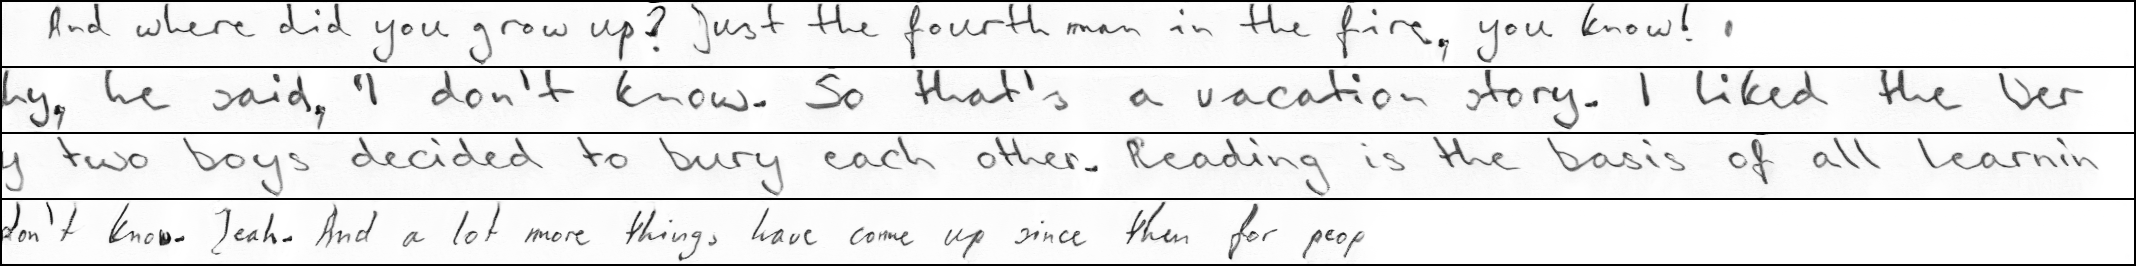 And where did you grow up? Just the fourth man in the fire, you know! ,
hy, he said, "I don't know. So that's a vacation story. I liked the Ber
y two boys decided to bury each other. Reading is the basis of all learnin
don't know. Yeah. And a lot more things have come up since then for peop